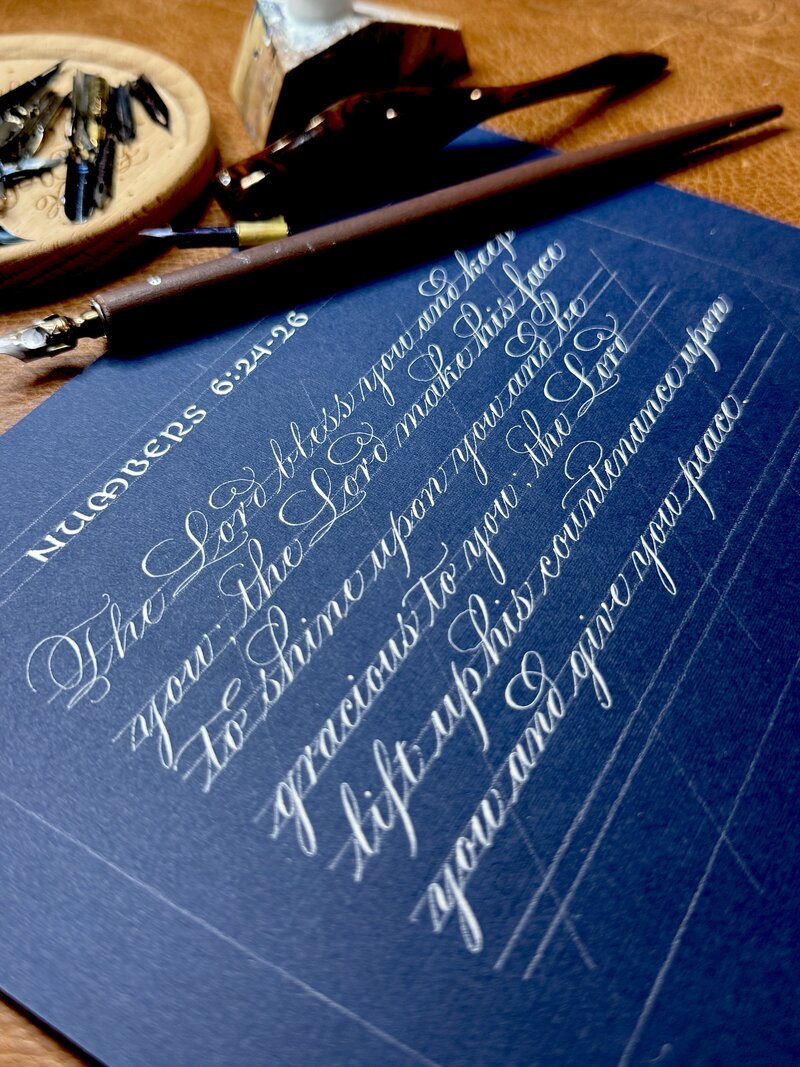 NUMBERS 6:24-26
The Lord bless you and keep
you; the Lord make his face
to shine upon you and be
gracious to you; the Lord
lift up his countenance upon
you and give you peace.